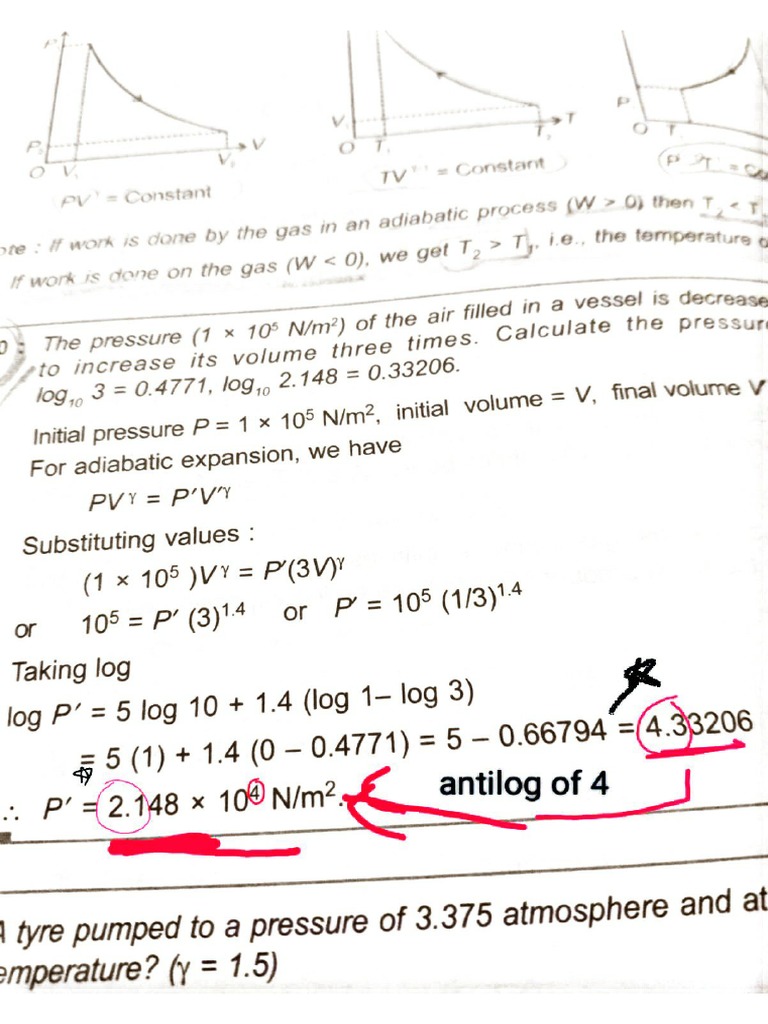 P
P₂
O V₁ V₂ V
PVᵞ = Constant
V
O T T₁ T
TV = Constant
P
O T
P T = Co
ote : If work is done by the gas in an adiabatic process (W > 0) then T₂ < T
If work is done on the gas (W < 0), we get T₂ > T₁, i.e., the temperature o
The pressure (1 × 10⁵ N/m²) of the air filled in a vessel is decrease
to increase its volume three times. Calculate the pressur
log₁₀ 3 = 0.4771, log₁₀ 2.148 = 0.33206.
Initial pressure P = 1 × 10⁵ N/m², initial volume = V, final volume V
For adiabatic expansion, we have
PVᵞ = P′V′ᵞ
Substituting values :
(1 × 10⁵ )Vᵞ = P′(3V)ᵞ
or 10⁵ = P′ (3)¹·⁴ or P′ = 10⁵ (1/3)¹·⁴
Taking log
log P′ = 5 log 10 + 1.4 (log 1– log 3)
= 5 (1) + 1.4 (0 – 0.4771) = 5 – 0.66794 = 4.33206
∴ P′ = 2.148 × 10⁴ N/m².
antilog of 4
A tyre pumped to a pressure of 3.375 atmosphere and at
emperature? (γ = 1.5)